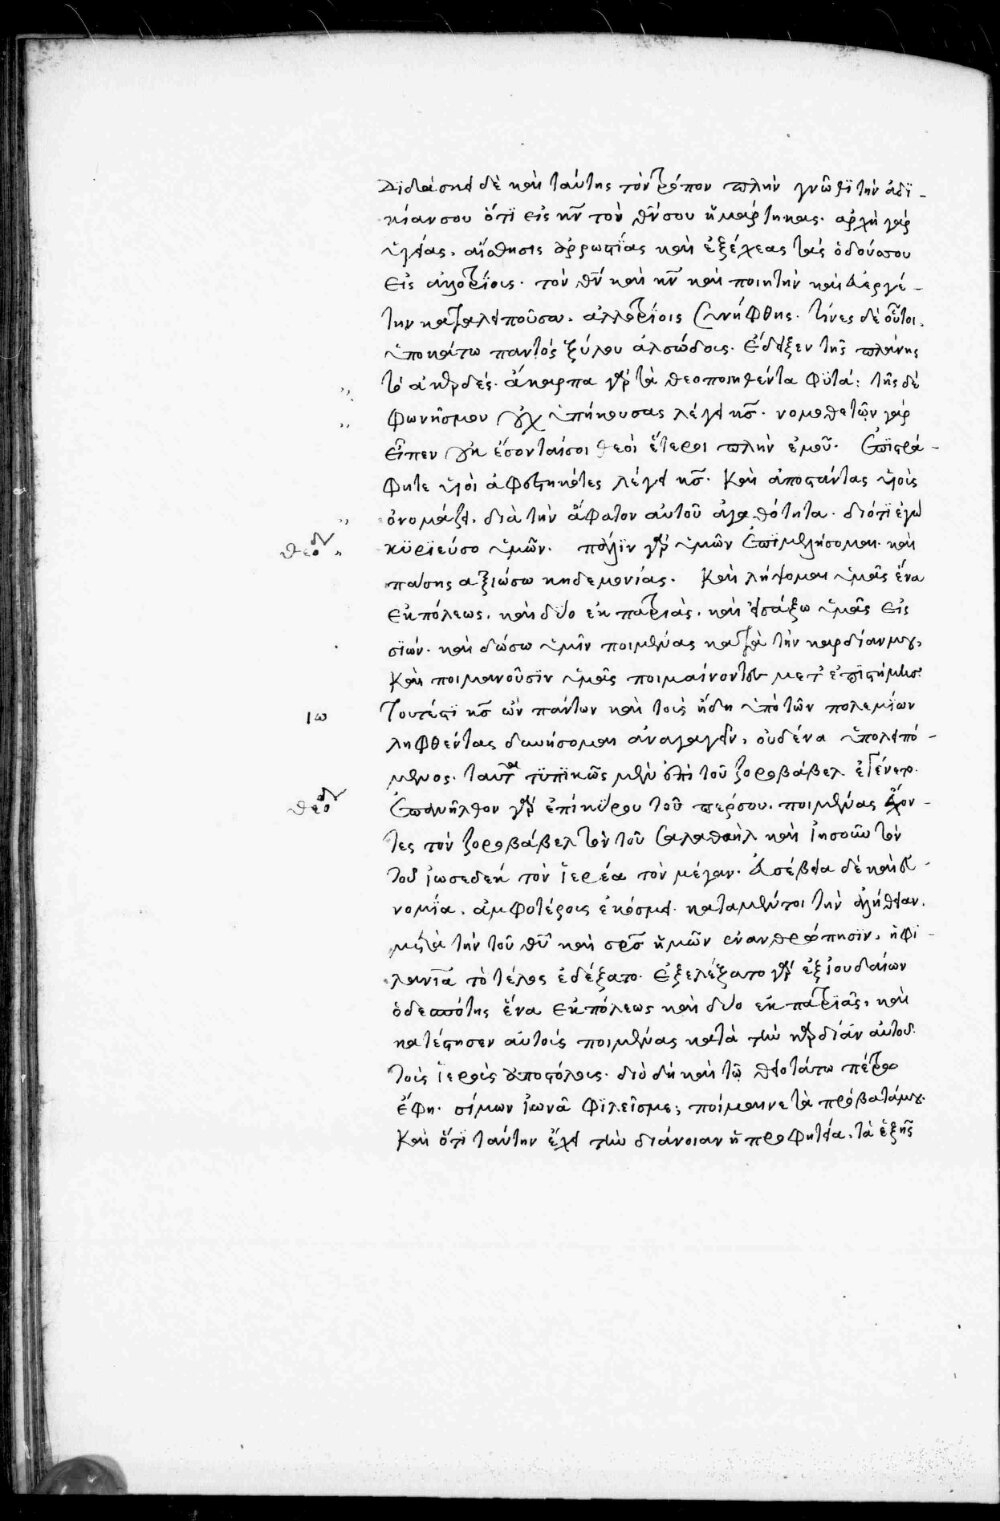 Διδάσκει δὲ καὶ ταύτης τὸν τρόπον πλὴν γνῶθϊ τὴν ἀδϊ-
κίαν σου ὅτϊ εἰς κ̅ν̅ τὸν θ̅ν̅ σου ἥμάρτηκας· ἀρχὴ γὰρ
ὑγείας, αἴσθησις ἀρρωστίας καὶ ἐξέχεας τὰς ὁδούς σου
εἰς ἀλλοτρίοις· τὸν θ̅ν̅ καὶ κ̅ν̅ καὶ ποιητὴν καὶ εὐεργέ-
την καταλειποῦσα, ἀλλοτρίοις συνήφθης· τίνες δὲ οὗτοι.
ὑποκάτω παντὸς ξύλου ἀλσώδους· ἔδειξεν τῆς πλάνης
τὸ ἀκερδές· ἄκαρπα γὰρ τὰ θεοποιηθέντα φϋτά: τῆς δὲ
φωνῆς μου οὐχ ὑπήκουσας λέγει κ̅ς̅· νομοθετῶν γὰρ
εἶπεν οὐκ ἔσονταί σοι θεοὶ ἕτεροι πλὴν ἐμοῦ· Ἐπϊστρά-
φητε υἱοὶ ἀφεστηκότες λέγει κ̅ς̅· Καὶ ἀποστάντας υἱοὺς
ὀνομάζει, διὰ τὴν ἄφατον αὐτοῦ ἀγαθότητα· διότϊ ἐγὼ
θεοδ κϋρϊεύσο ὑμῶν· πάλϊν γὰρ ὑμῶν ἐπϊμελήσομαι καὶ
πάσης ἀξιώσω κηδεμονίας· Καὶ λήψομαι ὑμᾶς ἕνα
ἐκ πόλεως, καὶ δύο ἐκ πατριᾶς, καὶ εἰσάξω ὑμᾶς εἰς
σϊών· καὶ δώσω ὑμῖν ποιμένας κατὰ τὴν καρδίαν μου,
Καὶ ποιμανοῦσϊν ὑμᾶς ποιμαίνοντες μετ' ἐπϊστήμης:
Ιω Τουτέστϊ κ̅ς̅ ὢν πάντων καὶ τοὺς ἤδη ὑπὸ τῶν πολεμίων
ληφθέντας δυνήσομαι ἀναγαγεῖν, οὐδένα ὑπολειπό-
μενος· ταῦτα τϋπϊκῶς μὲν ἐπὶ τοῦ ζοροβάβελ ἐγένετο.
θεοδ Ἐπανῆλθον γὰρ ἐπὶ κϋρου τοῦ πέρσου, ποιμένας ἔχον-
τες τὸν ζοροβάβελ τὸν τοῦ Σαλαθιὴλ καὶ ἰησοῦν τὸν
τοῦ ἰωσεδεκ τὸν ἱερέα τὸν μέγαν· Εὐσέβεια δὲ καὶ εὐ-
νομία, ἀμφοτέρους ἐκόσμει· καταμέντοι τὴν ἀλήθειαν,
μετὰ τὴν τοῦ θ̅υ̅ καὶ σ̅ρ̅ς̅ ἡμῶν ἐνανθρώπησϊν, ἡ
τὸ τέλος ἐδέξατο· Ἐξελέξατο γὰρ ἐξ ἰουδαίων
ὁ δεσπότης ἕνα ἐκ πόλεως καὶ δύο ἐκ πατρϊᾶς, καὶ
κατέστησεν αὐτοῖς ποιμένας κατὰ τὴν καρδίαν αὐτοῦ·
τοὺς ἱεροὺς ἀποστόλους· διὸ δὴ καὶ τῷ θειοτάτω πέτρω
ἔφη· σίμων ἰωνᾶ φϊλεῖς με; ποίμαινε τὰ πρόβατά μου·
Καὶ ὅτϊ ταύτην ἔχει τὴν διάνοιαν ἡ προφητεία, τὰ ἑξῆς